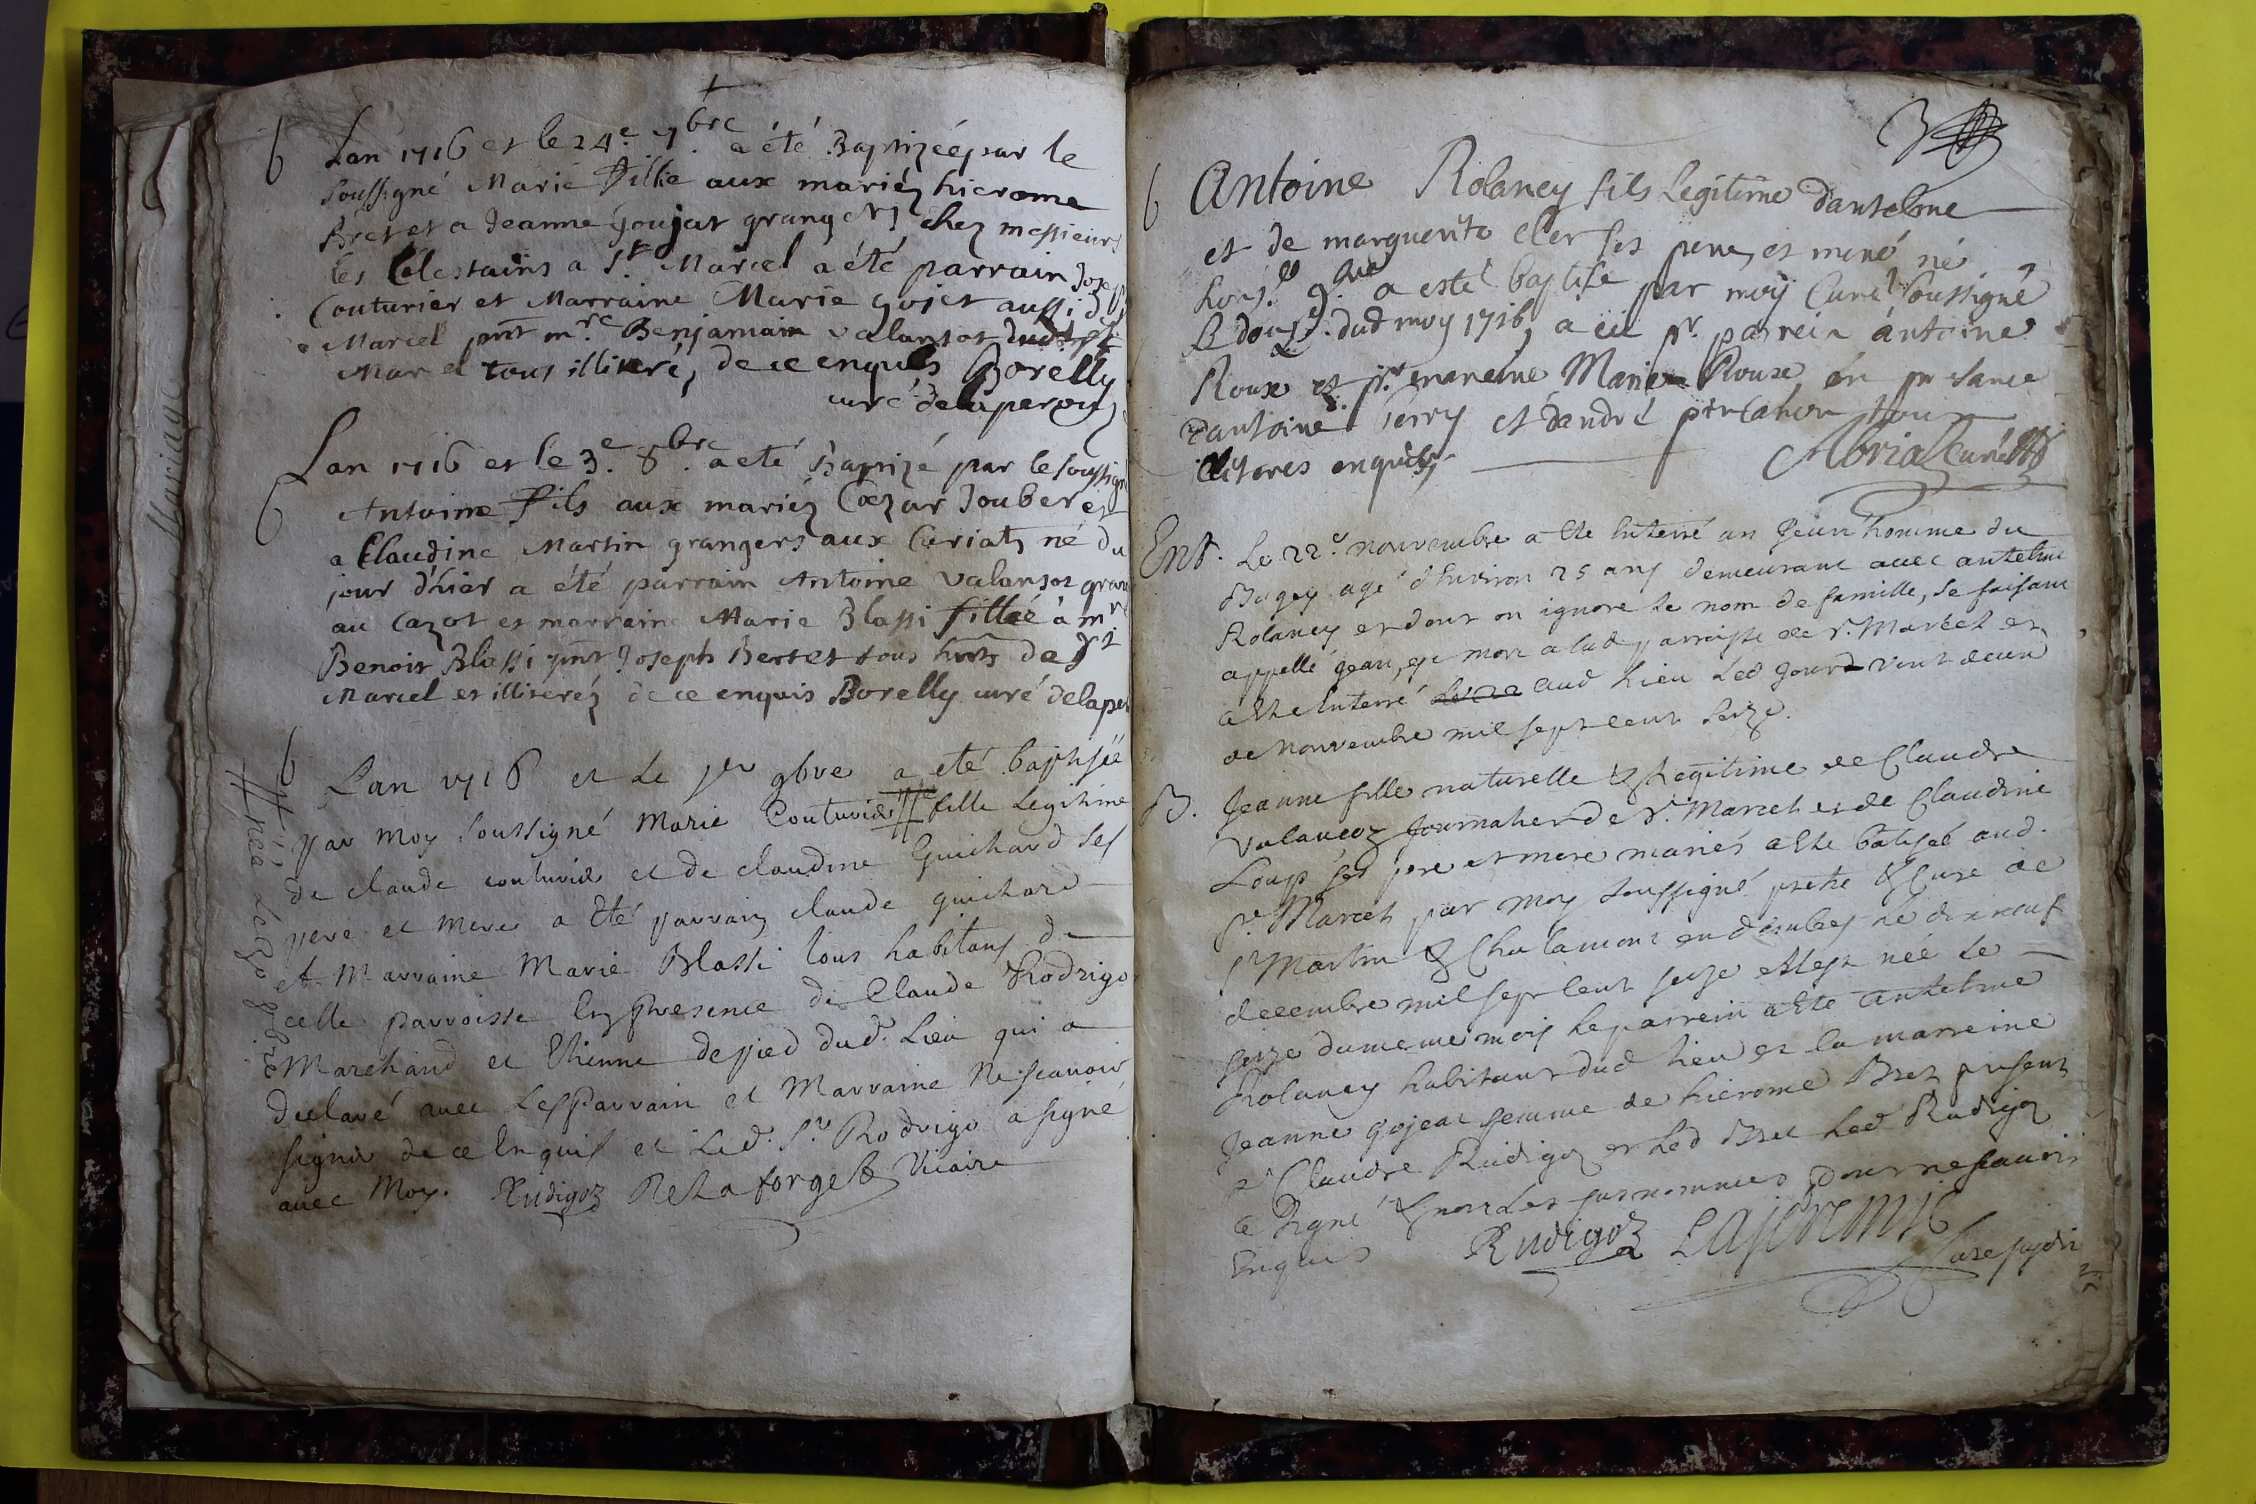 Lan 1716 et le 24e. 7bre. a été Baptizéé par le
soussigné Marie fillie aux mariéz hierome
Bret et a Jeanne Goujat grangers chez messieurs
les Celestains a St Marcel a été parrain
Couturier et Marraine Marie gojet aussi
Marcel pnt mre Benjamain valansot dud St
Marcel tous illiterés de ce enquis Borelly
curé delaperouz
Lan 1716 et le 3e. 8bre. a eté Baptizé par le soussigné
Antoine fils aux mariéz Coezar Joubert et
a Claudine Martin grangers aux Cariats né du
jour d'hier a été parrain Antoine valansot
au Cazot et marraine Marie Blassi filleé à mre
Benoit Blassi pnt Joseph Bertet tous hnts de St
Marcel et illiteréz de ce enquis Borelly curé
Lan 1716 et Le jer 9bre a eté baptisée
par moy soussigné Marie Couturier # fille Legitime
de claude couturier et de claudine Guichard ses
pere et mere a Eté parrain claude guichard
et Marraine Marie Blassi tous habitans de
celle parroisse En presence de Claude Rodrigo
Marchand et Etienne depied dud. Lieu qui a
declaré avec Les Parrain et Marraine Ne scavoir
signer de ce Enquis et Led. Sr. Rodrigo a signé
avec Moy. Rudigoz Delaforge Vicaire
# née Le 30 8bre
Mariage
3
Antoine Rolancy fils Legitime dantelme
et de marguerite Cler ses pere, et mere né
9bre a esté baptisé par moy Curé soussigné
Le dud moy 1716, a eté pr. parrein antoine
Roux et pr. mareine Marie Roux en presance
dantoine Perry et d'andré
enquis
Abrial curé
Ent. Le 22e nouvembre a Ete Enterré un Jeun homme du
Bugey agé d'Environ 25 ans demeurant avec antelme
Rolancy et dont on ignore le nom de famille, se faisant
appellé jean, est mort a lad parroisse de St. Marcel et
a Ete Enterré aud Lieu Led jour vint deux
de Nouvembre mil sept cent Seize.
B. Jeanne fille naturelle & Legitime de Claudre
Valancoz Journalier de St. Marcel et de Claudine
Loup ses pere et mere mariés a Ete batisée aud.
St. Marcel par moy soussigné pretre & Curé de
St Martin & Chalamont en dombes le dix neuf
decembre mil sept cent seize et Est née le
seize du meme mois le parrein a Ete antelme
Rolancy habitant dud Lieu et la marreine
Jeanne gojeat femme de hierome Bret present
Sr Claudre Rudigoz et Led Bret Led Rudigoz
a Signé & non Les susnommes pour ne scavoir
Enquis Rudigoz